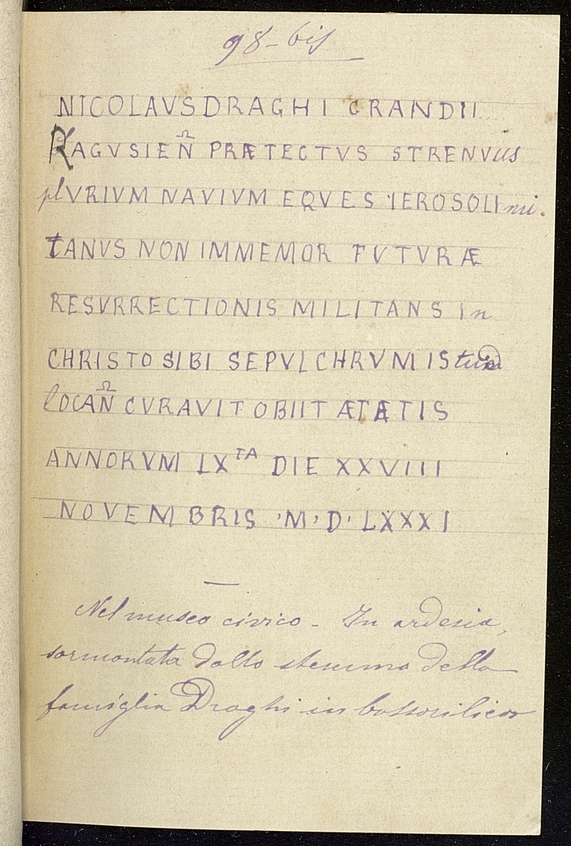 98-bis
NICOLAVS DRAGHI GRANDII
RAGVSIEÑ PRÆTECTVS STRENVUS
plVRIVM NAVIVM EQVES IEROSOLImi.
TANVS NON IMMEMOR FVTVRÆ
RESVRRECTIONIS MILITANS In
CHRISTO SIBI SEPVLCHRVM IStud
lOCAÑ CVRAVIT OBIIT ÆTÆTIS
ANNORVM LXTA DIE XXVIII
NOVEMBRIS 'M' D' LXXXI
Nel museo civico - In ardesia,
sormontata dallo stemma della
famiglia Draghi in bassorilievo